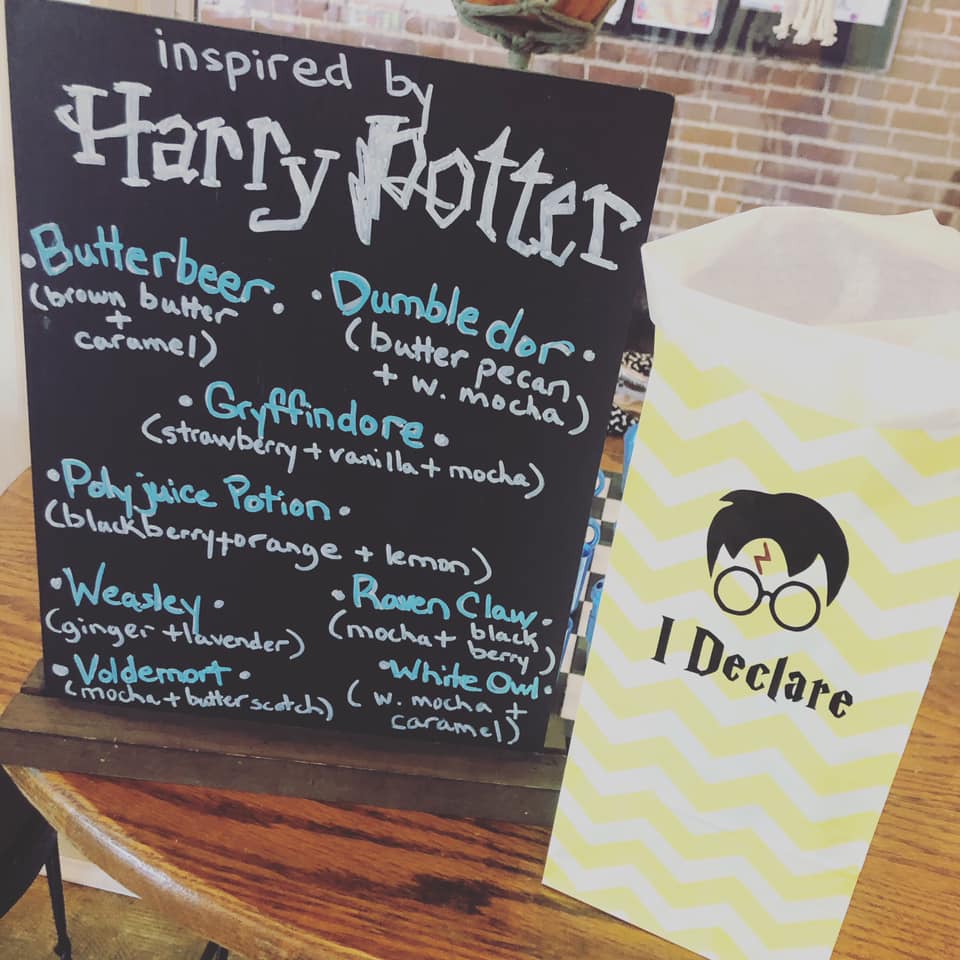 inspired by
Harry Potter
• Butterbeer •
(brown butter
+
caramel)
• Dumbledor •
(butter pecan
+ w. mocha)
• Gryffindore •
(strawberry + vanilla + mocha)
• Polyjuice Potion •
(blackberry + orange + lemon)
• Weasley •
(ginger + lavender)
• Raven Claw •
(mocha + black
berry)
• Voldemort •
(mocha + butterscotch)
• White Owl •
(w. mocha +
caramel)
I Declare